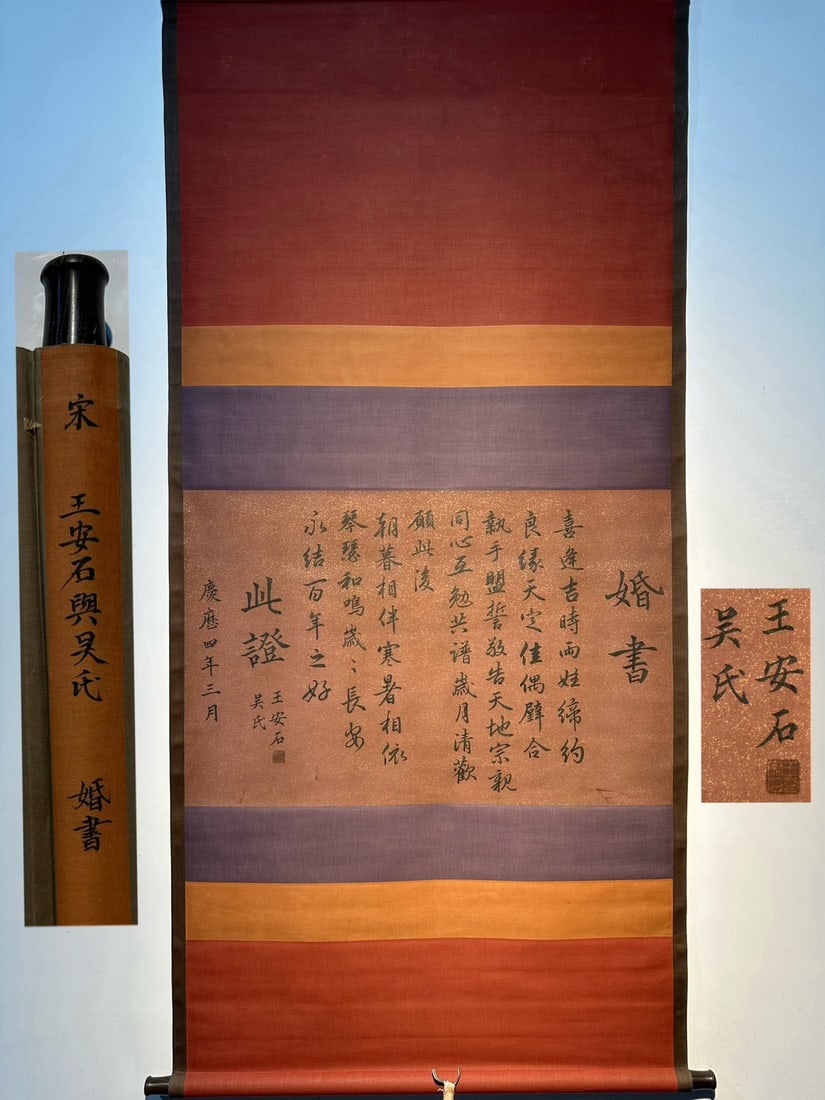 婚書
喜逢吉時兩姓締約
良緣天定佳偶璧合
執手盟誓敬告天地宗親
同心互勉共譜歲月清歡
願此後
朝暮相伴寒暑相依
琴瑟和鳴歲〻長安
永结百年之好
此證
王安石
吴氏
慶曆四年三月
宋
王安石與吴氏
婚書
王安石
吴氏